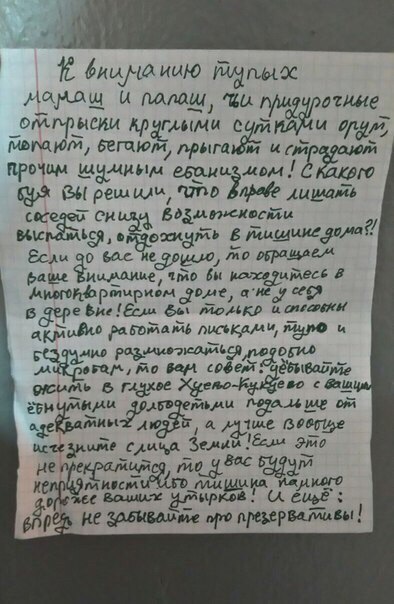 К вниманию тупых
мамаш и папаш, чьи придурочные
отпрыски круглыми сутками орут,
топают, бегают, прыгают и страдают
прочим шумным ебанизмом! С какого
буя вы решили, что вправе лишать
соседей снизу возможности
выспаться, отдохнуть в тишине дома?!
Если до вас не дошло, то обращаем
ваше внимание, что вы находитесь в
многоквартирном доме, а не у себя
в деревне! Если вы только и способны
активно работать письками, тупо и
бездумно размножаться, подобно
микробам, то вам совет: уёбывайте
жить в глухое Хуево-Кукуево с вашими
ёбнутыми долбодетьми подальше от
адекватных людей, а лучше вообще
исчезните с лица Земли! Если это
не прекратится, то у вас будут
неприятности ибо тишина намного
дороже ваших утырков! И ещё:
впредь не забывайте про презервативы!